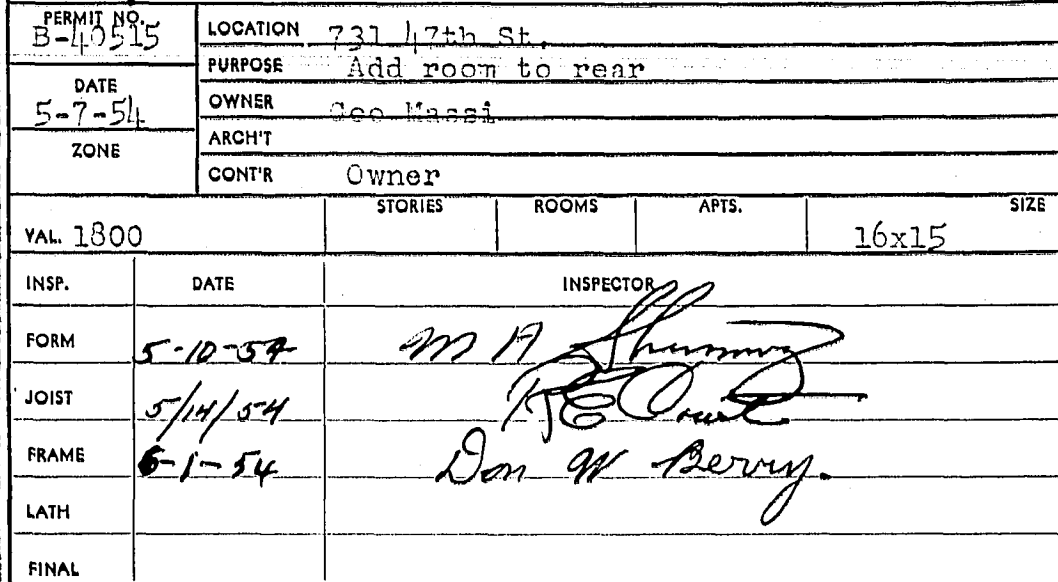 PERMIT NO. B-40515
LOCATION 731 47th St.
PURPOSE Add room to rear
DATE 5-7-54
OWNER Geo Massi
ZONE
ARCH'T
CONT'R Owner
VAL. 1800 STORIES ROOMS APTS. SIZE 16x15
INSP. DATE INSPECTOR
FORM 5-10-54 M A
JOIST 5/14/54 R E
FRAME 6-1-54 Don W Berry.
LATH
FINAL